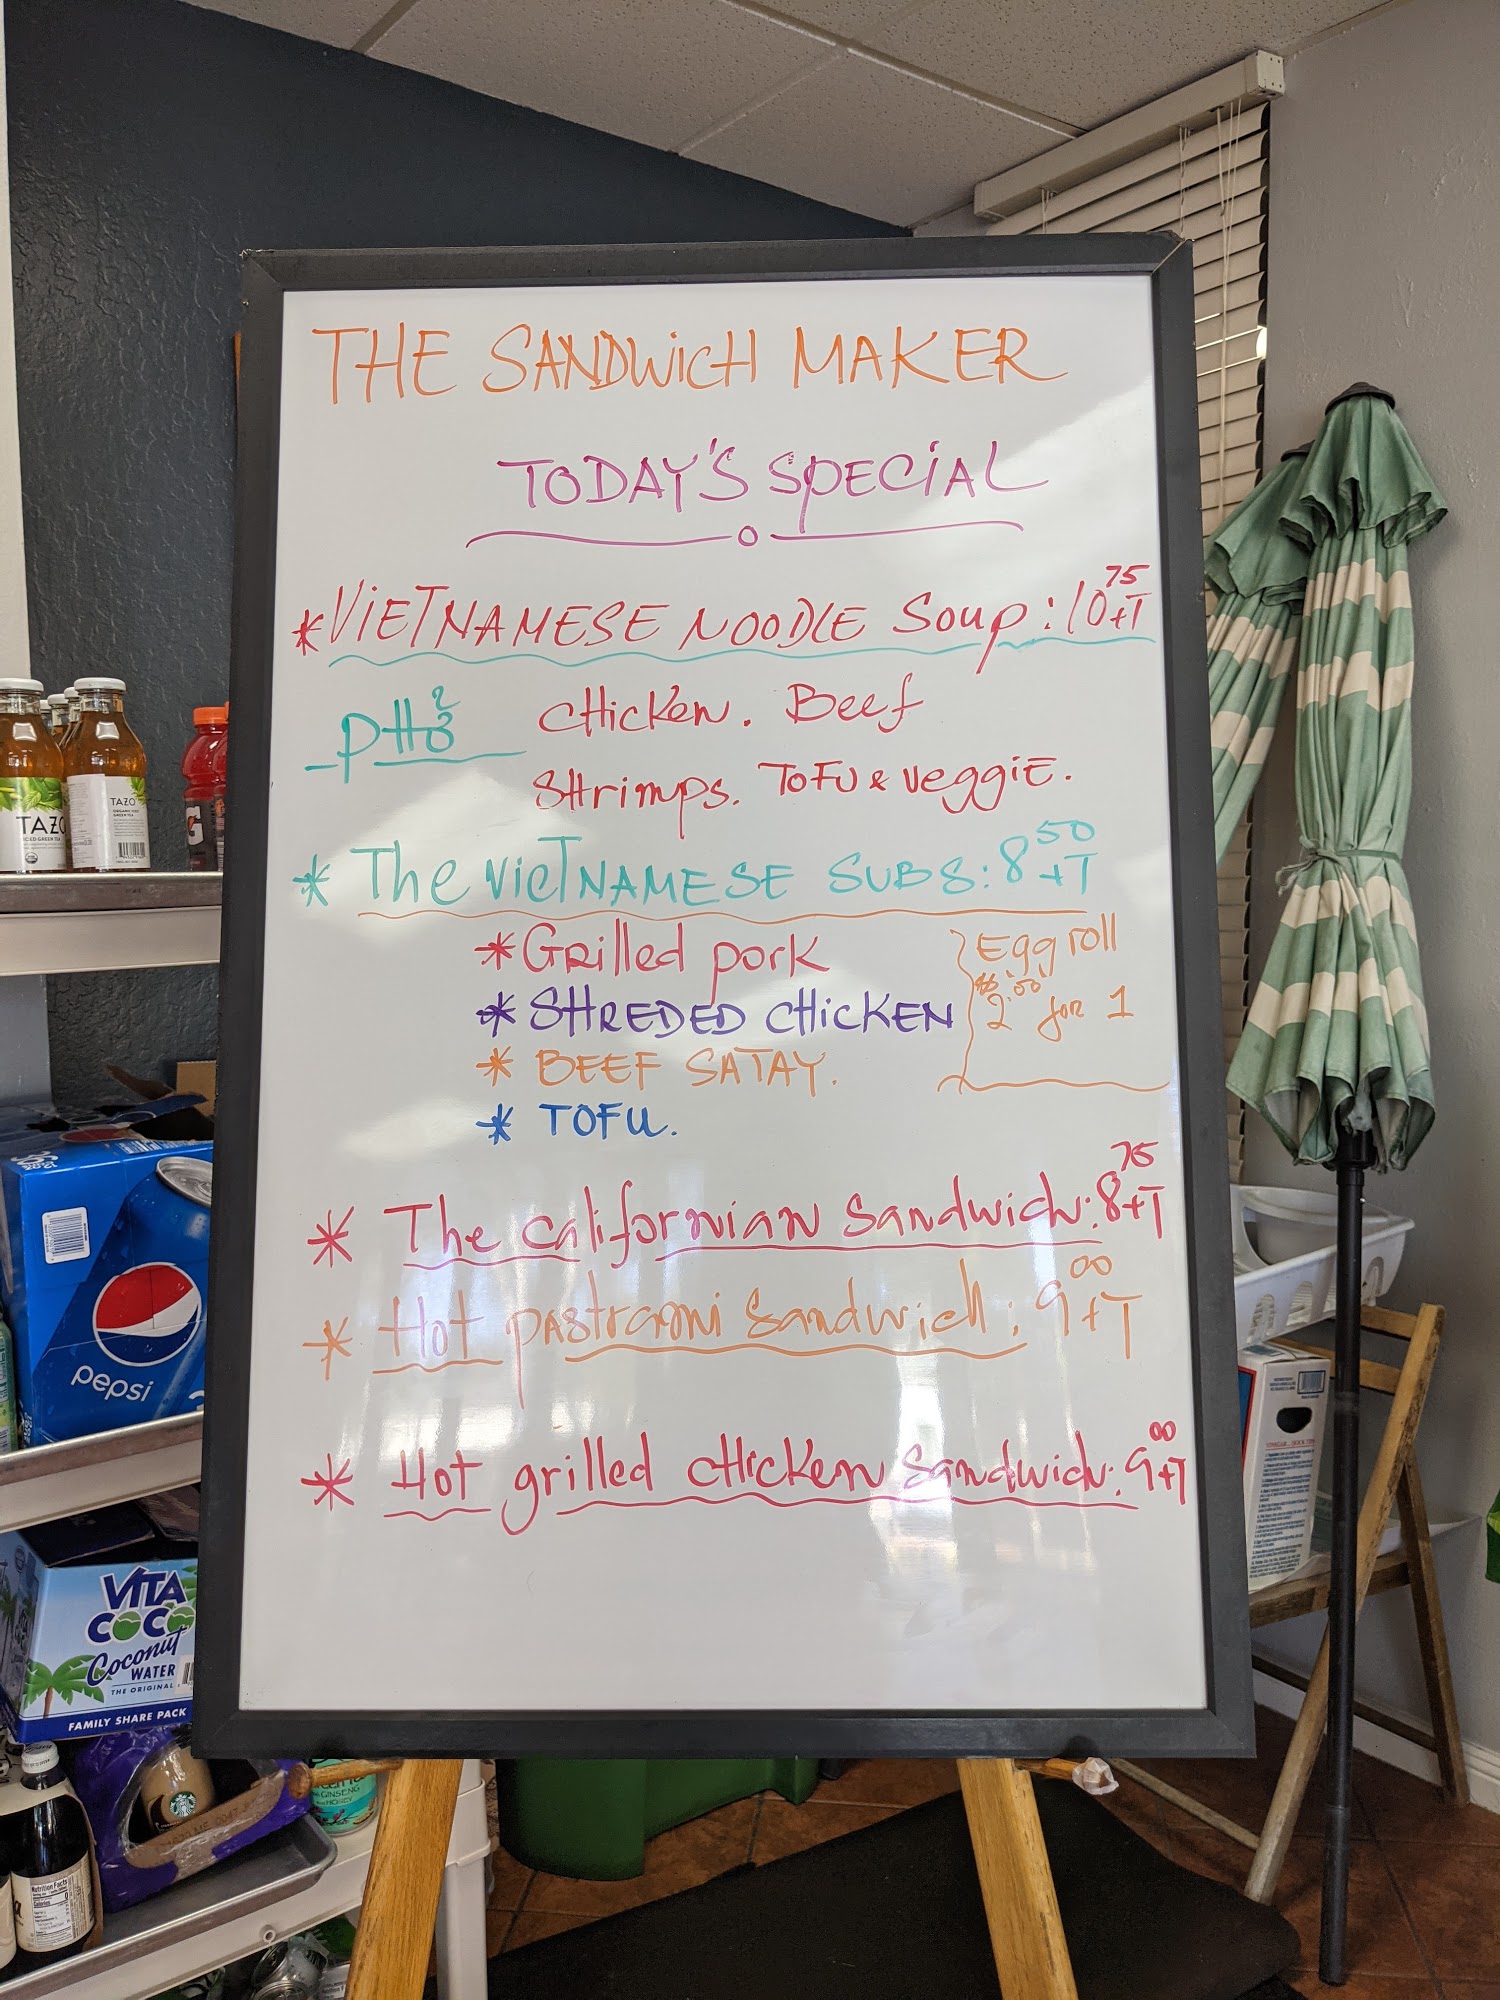 THE SANDWicH MAKER
TODAY'S SPECiAL
*ViETNAMESE NOODLE Soup: 10 75 +T
pHở
cHicken. Beef
SHrimps. ToFu & veggiE.
* The vieTNAMESE SUBS: 8 50 +T
*Grilled pork
* SHREDED CHiCKEN
* BEEF SATAY.
* TOFU.
Egg roll
$2.00 for 1
* The californian Sandwich: 8 75 +T
* Hot pastrami Sandwich: 9 00 +T
* Hot grilled cHicken Sandwich: 9 00 +T
TAZO
ICED GREEN TEA
TAZO
ORGANIC ICED
GREEN TEA
G
36
pepsi
VITA
COCO
Coconut
WATER
THE ORIGINAL
FAMILY SHARE PACK
GINSENG
HONEY
Nutrition Facts